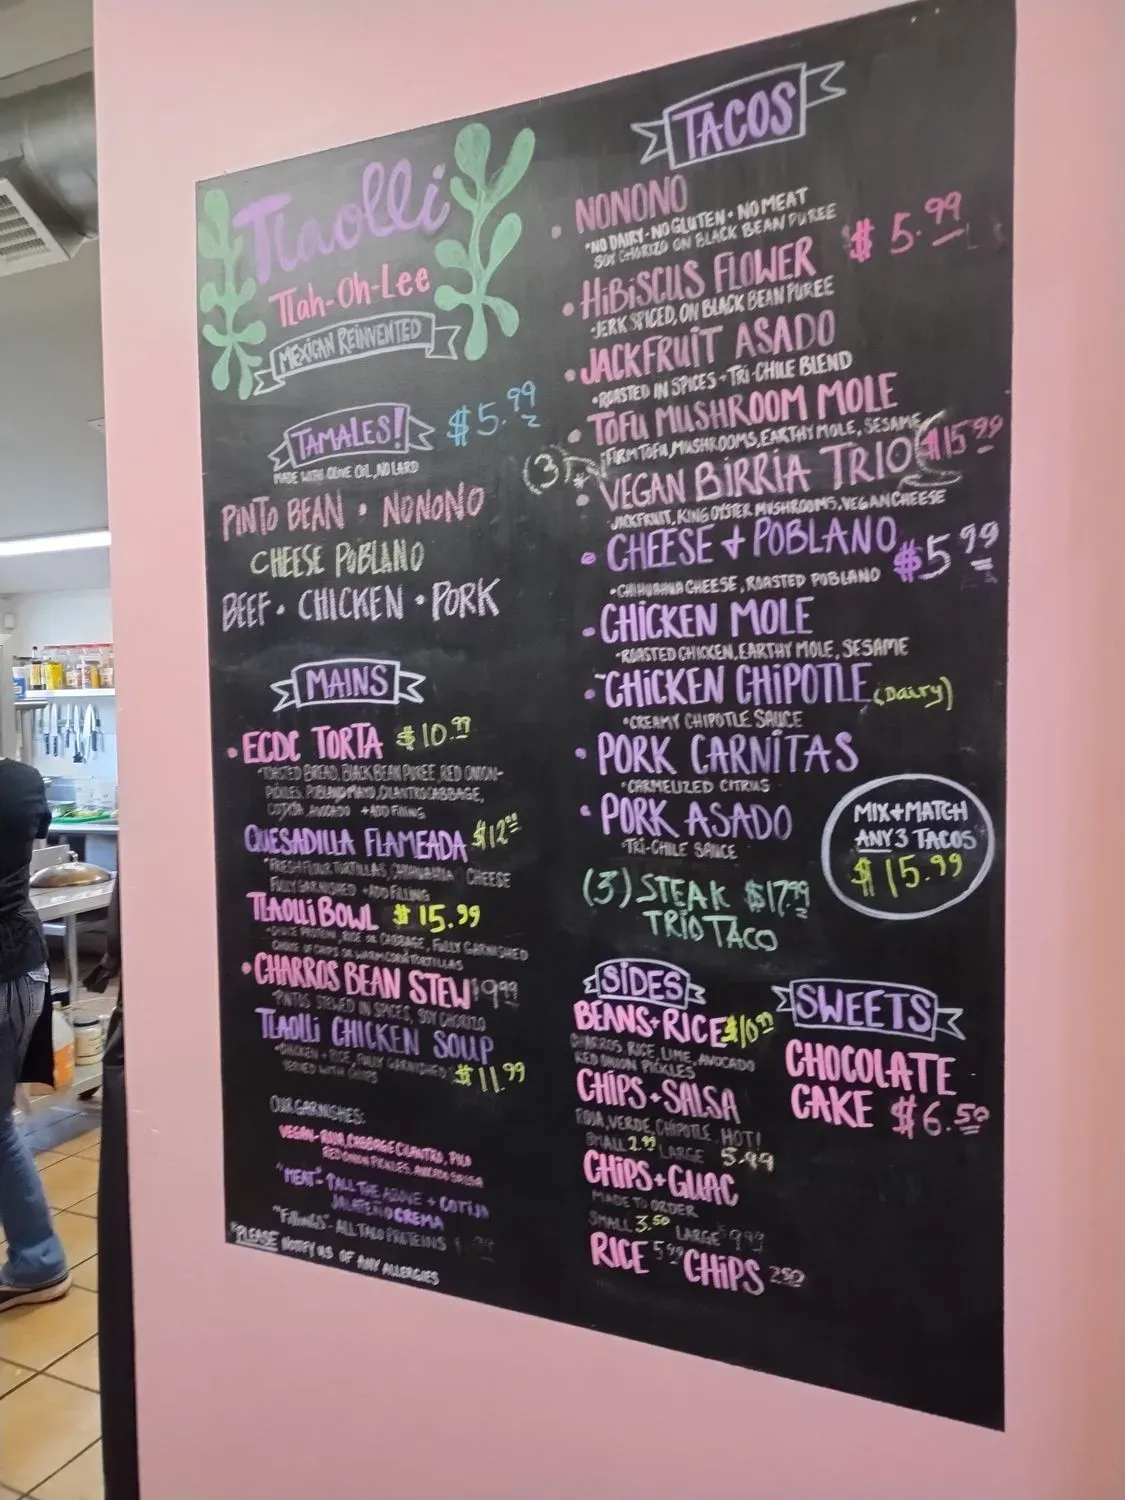 Tlaolli
Tlah-Oh-Lee
MEXICAN REINVENTED
TAMALES! $5.99
MADE WITH OLIVE OIL, NO LARD
PINTO BEAN • NONONO
CHEESE POBLANO
BEEF • CHICKEN • PORK
MAINS
• ECDC TORTA $10.99
*TOASTED BREAD, BLACK BEAN PUREE, RED ONION-
PICKLES, POBLANO MAYO, CILANTRO CABBAGE,
COTIJA, AVOCADO +ADD FILLING
QUESADILLA FLAMEADA $12
*FRESH FLOUR TORTILLAS, CHIHUAHUA CHEESE
FULLY GARNISHED +ADD FILLING
TLAOLLI BOWL $15.99
PROTEIN, RICE OR CABBAGE, FULLY GARNISHED
CHOICE OF CHIPS OR WARM CORN TORTILLAS
• CHARROS BEAN STEW $9.99
*PINTOS STEWED IN SPICES, SOY CHORIZO
TLAOLLI CHICKEN SOUP
*CHICKEN + RICE, FULLY GARNISHED $11.99
SERVED WITH CHIPS
OUR GARNISHES:
VEGAN- CABBAGE CILANTRO, PICO
RED ONION PICKLES, AVOCADO SALSA
"MEAT"- *ALL THE ABOVE + COTIJA
JALAPEÑO CREMA
"FILLINGS"- ALL TACO PROTEINS
*PLEASE NOTIFY US OF ANY ALLERGIES
TACOS
• NONONO
*NO DAIRY • NO GLUTEN • NO MEAT $5.99
SOY CHORIZO ON BLACK BEAN PUREE
• HIBISCUS FLOWER
-JERK SPICED, ON BLACK BEAN PUREE
• JACKFRUIT ASADO
*ROASTED IN SPICES + TRI-CHILE BLEND
• TOFU MUSHROOM MOLE
*FIRM TOFU, MUSHROOMS, EARTHY MOLE, SESAME
(3) • VEGAN BIRRIA TRIO $15.99
JACKFRUIT, KING OYSTER MUSHROOMS, VEGAN CHEESE
• CHEESE + POBLANO $5.99
*CHIHUAHUA CHEESE, ROASTED POBLANO
• CHICKEN MOLE
*ROASTED CHICKEN, EARTHY MOLE, SESAME
• CHICKEN CHIPOTLE (Dairy)
*CREAMY CHIPOTLE SAUCE
• PORK CARNITAS
*CARMELIZED CITRUS
• PORK ASADO
*TRI-CHILE SAUCE
MIX+MATCH
ANY 3 TACOS
$15.99
(3) STEAK $17.99
TRIO TACO
SIDES
BEANS+RICE $10.99
CHARROS, RICE, LIME, AVOCADO
RED ONION PICKLES
CHIPS+SALSA
ROJA, VERDE, CHIPOTLE, HOT!
SMALL 2.99 LARGE 5.99
CHIPS+GUAC
MADE TO ORDER
SMALL 3.50 LARGE $9.99
RICE 5.99 CHIPS 2.50
SWEETS
CHOCOLATE
CAKE $6.50